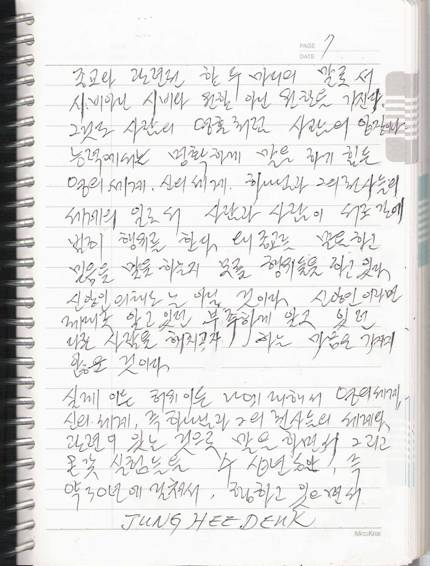 PAGE 7
DATE
종교와 관련된 한 두 마디의 말로서
시비아닌 시비와 원한 아닌 원한을 가진다.
그것도 사람의 영혼처럼 사람의 입장이나
능력에서는 명확하게 말을 하기 힘든
영의세계. 신의세계. 하나님과 그의천사들의
세계의 일로서 사람과 사람이 서로간에
범죄 행위를 한다. 왜 종교로 말을하고
믿음을 말을 하는지 모를 행위들을 하고있다.
신앙인의 태도는 아닐 것이다. 신앙인이라면
알고 있던 부족하게 알고 있던
다른 사람을 해치고자 하는 마음은 가지지
않을 것이다.
실제 이든 허위 이든 나에 대해서 영의세계,
신의세계, 즉 하나님과 그의 천사들의 세계와
관련이 있는 것으로 말을 하면서 그리고
온갖 실험들을 수 십년 동안, 즉
약30년에 걸쳐서, 행하고 있으면서
JUNG HEE DEUK